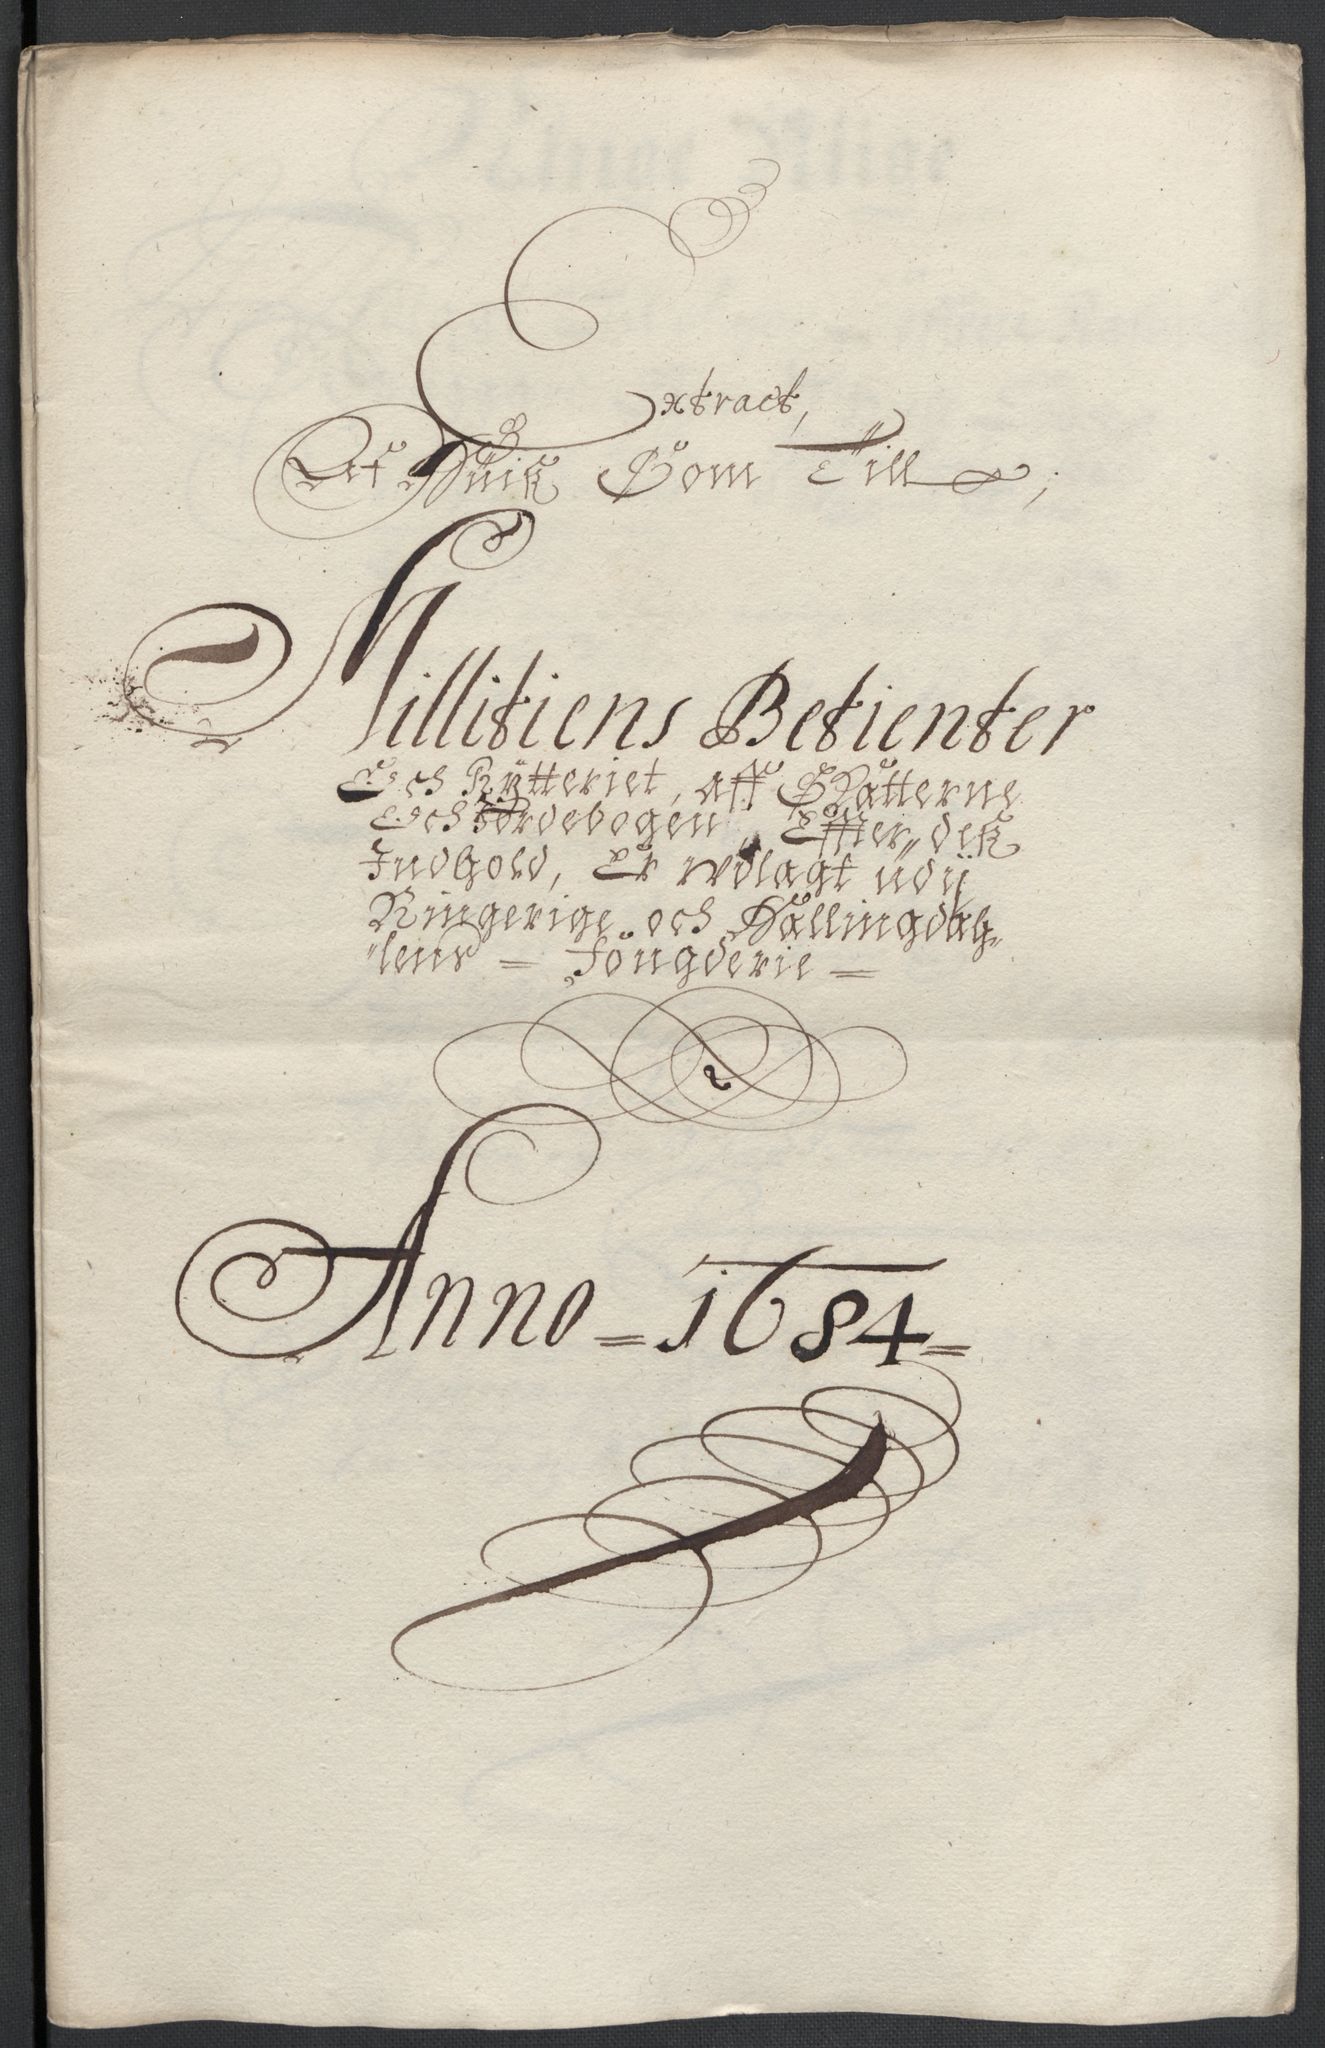 Extract,
Af Huis Som Till;
Millitiens Betienter
Och Rÿtteriet, aff Skatterne
Och Jordebogen, Effter dets
Indhold, Er wdlagt udÿ
Ringerige och Hallingdah„
„lens = Fougderie =
Anno = 1684 =